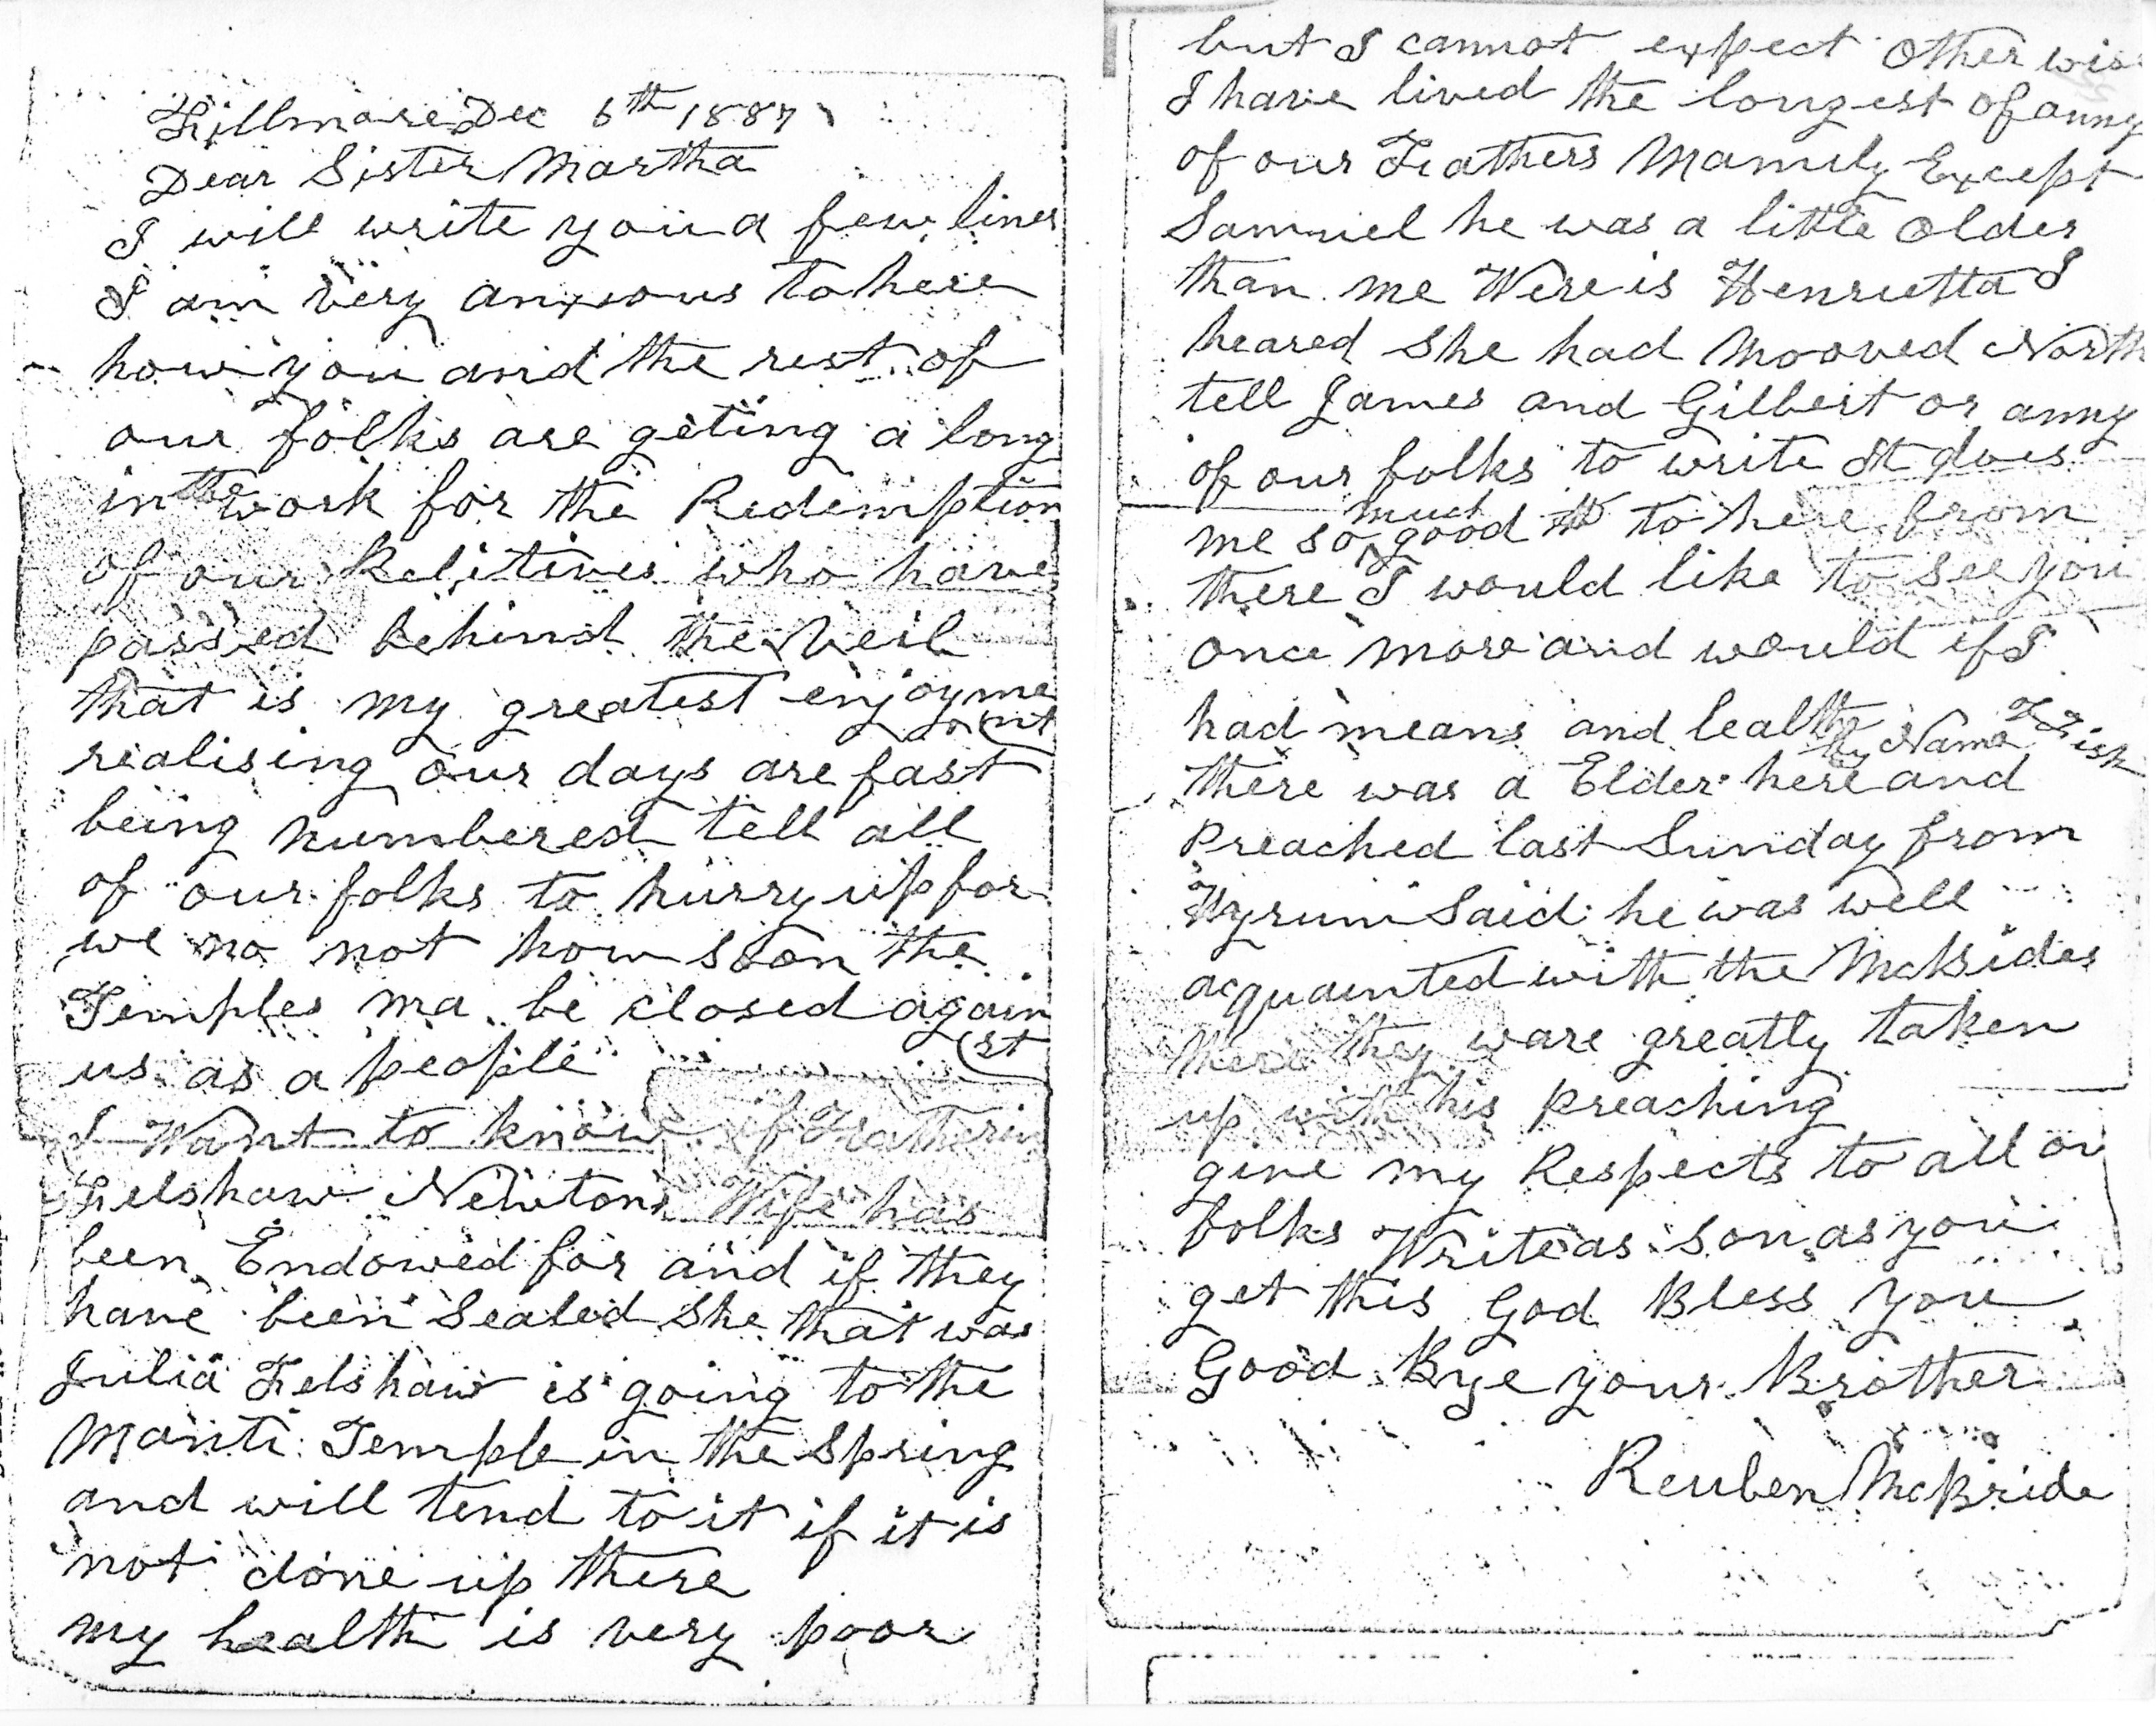 Fillmore Dec 6th 1887
Dear Sister Martha
I will write you a few lines
I am very anxious to here
how you and the rest of
our folks are geting a long
in the work for the Redemption
of our Relitives who have
passed behind the Veil
that is my greatest enjoyment
rialising our days are fast
being numbered tell all
of our folks to hurry up for
we no not how soon the
Temples ma be closed against
us as a people
I Want to know if Katherin
Felshaw Newtons Wife has
been Endowed for and if they
have been Sealed She that was
Julia Felshaw is going to the
Manti Temple in the Spring
and will tend to it if it is
not done up there
my health is very poor
but I cannot expect Other wis
I have lived the longest of anny
of our Fathers Mamily Except
Samuel he was a little Older
than me Were is Henrietta I
heared She had Mooved North
tell James and Gilbert or anny
of our folks to write It does
me so much good to here from
there I would like to see you
once more and would if I
had means and lealth
there was a Elder by Name Fish here and
Preached last Sunday from
Hyrum Said he was well
acquainted with the McBrides
there they ware greatly taken
up with his preaching
give my Respects to all ou
folks Write as son as you
get this God Bless you
Good Bye your Brother
Reuben McBride